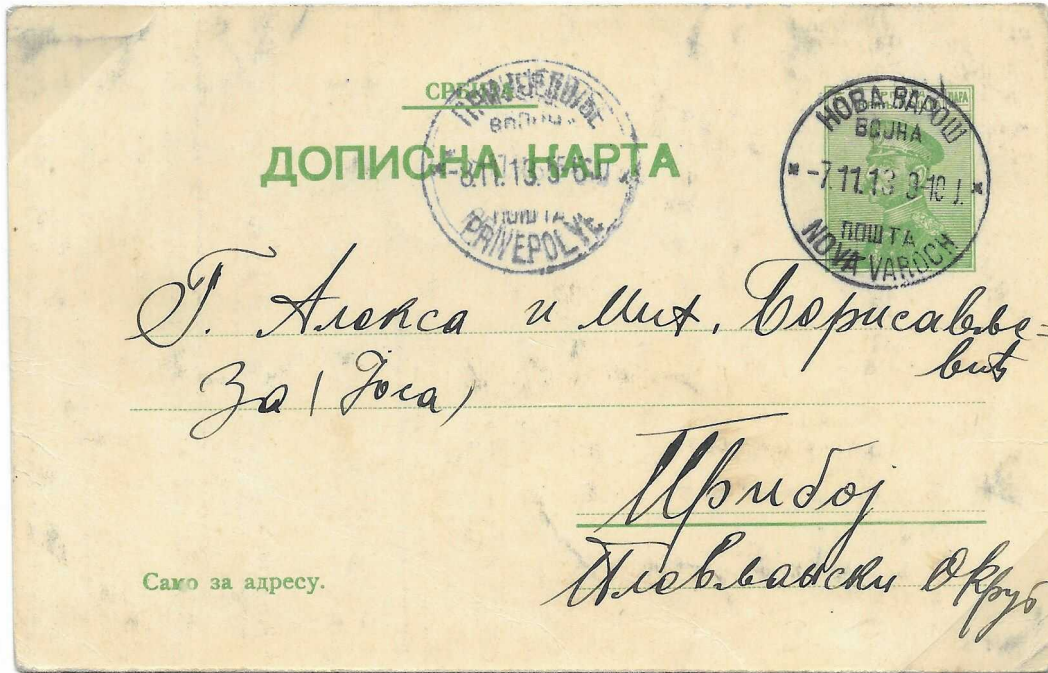 СРБИЈА
ДОПИСНА КАРТА
ПРИЈЕПОЉЕ
ВОЈНА
-8.11.13. 5-6
ПОШТА
PRIVEPOLYE
ПАРА
НОВА ВАРОШ
ВОЈНА
-7.11.13 9-10
ПОШТА
NOVA VAROCH
Г. Алекса и Мих. Борисавље=
вић
За (Јоса)
Прибој
Плевљански Округ
Само за адресу.